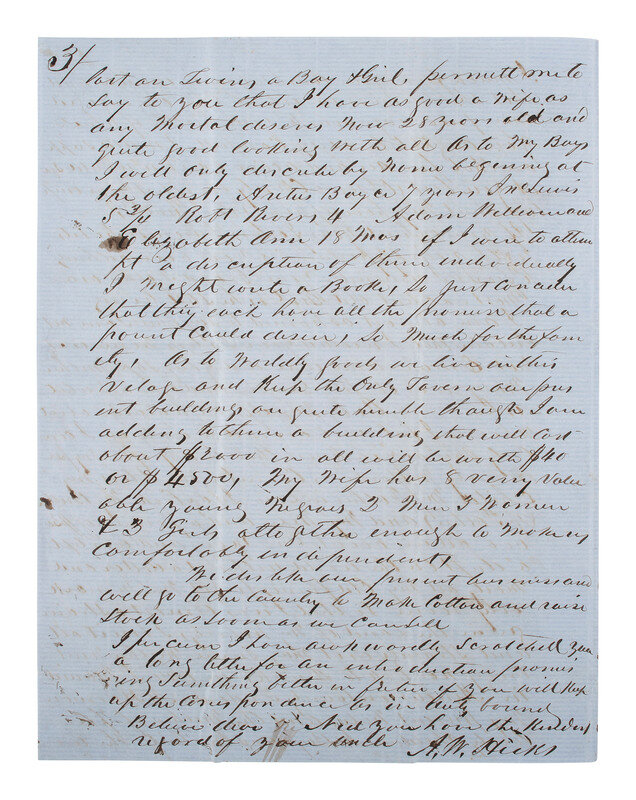 3/
last are Living a Boy & Girl, permitt me to
Say to you that I have as good a Wife as
any Mortal deserves Now 28 years old and
quite good looking with all As to My Boys
I will only describe by Name begening at
the oldest, Boyce 7 years Jno Lewis
5 3/4 Robt Rivers 4 Adam William and
Elizabeth Ann 18 Mos if I were to attem
pt a discription of them individually
I Might wrote a Book, So just Concider
that they each have all the promise that a
parent Could desire, So Much for the fam
ily, As to Worldly goods we live in this
Velage and Keep the Only Tavern our pres
ent buildings are quite humble though I am
adding to them a building that will Cost
about $2000 in all will be worth $40
or $4500, My Wife has 8 verry Valu
able young Negroes 2 Men 3 Women
& 3 Girls altogether enough to Make us
Comfortably independent,
We dislike our present business and
will go to the Country to Make Cotton and raise
Stock as soon as we Can sell
I percieve I have awkwardly Scratched you
a long letter for an introduction promis
ing Something better in future if you will Keep
up the Correspondence as in duty bound
Believe dear you have the Kindest
regard of your uncle A. W. Hicks